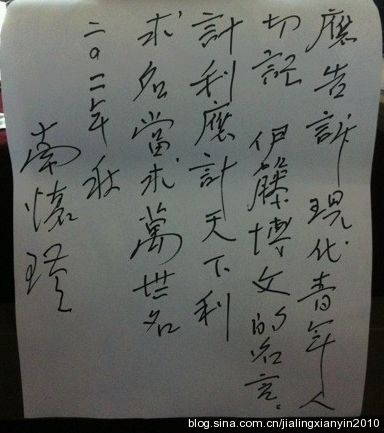 應告訴現代青年人
切記 伊藤博文的名言。
計利應計天下利
求名當求萬世名
二〇一一年秋
南懷瑾
blog.sina.com.cn/jialingxianyin2010